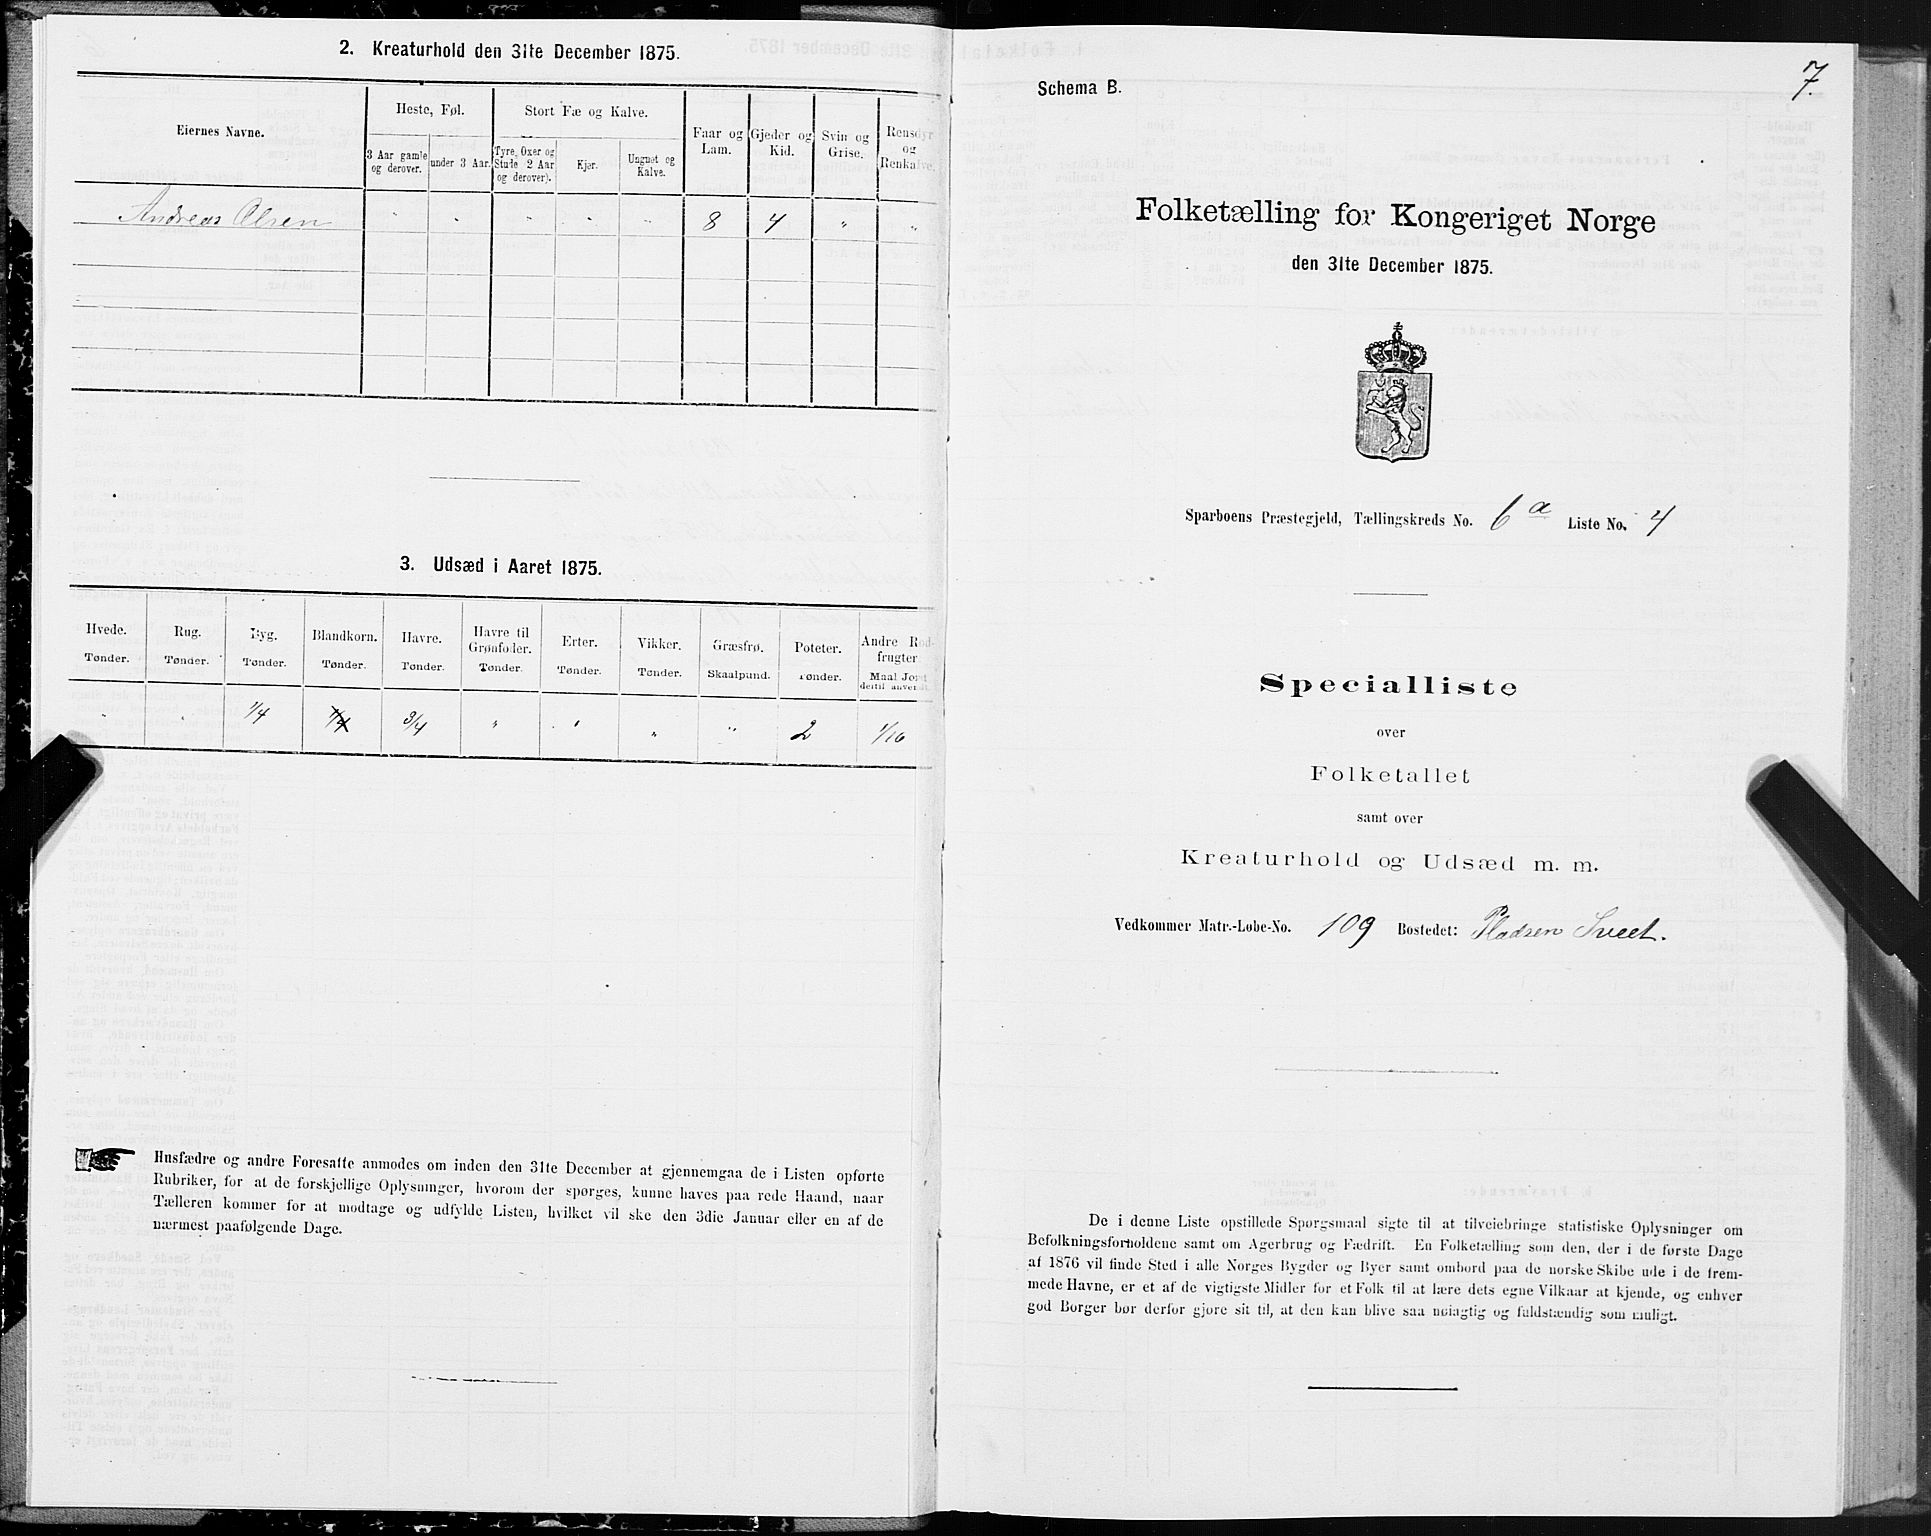 2. Kreaturhold den 31te December 1875.
Eiernes Navne.
Heste, Føl.
Stort Fæ og Kalve.
Faar og Lam.
Gjeder og Kid.
Svin og Grise.
Rensdyr og Renkalve.
3 Aar gamle og derover.
under 3 Aar.
Tyre, Oxer og Stude 2 Aar og derover).
Kjør.
Ungnøt og Kalve.
Andreas Olsen " " " " " 8 4 " "
3. Udsæd i Aaret 1875.
Hvede. Rug. Byg. Blandkorn. Havre. Havre til Grønfoder. Erter. Vikker. Græsfrø. Poteter. Andre Rodfrugter
Tønder. Tønder. Tønder. Tønder. Tønder. Tønder. Tønder. Tønder. Skaalpund. Tønder. Maal Jord dertil anvendt.
" " 1/4 1/4 3/4 " " " " 2 1/10
Husfædre og andre Foresatte anmodes om inden den 31te December at gjennemgaa de i Listen opførte
Rubriker, for at de forskjellige Oplysninger, hvorom der spørges, kunne haves paa rede Haand, naar
Tælleren kommer for at modtage og udfylde Listen, hvilket vil ske den 3die Januar eller en af de
nærmest paafølgende Dage.
7.
Schema B.
Folketælling for Kongeriget Norge
den 31te December 1875.
Sparboens Præstegjeld, Tællingskreds No. 6 a Liste No. 4
Specialliste
over
Folketallet
samt over
Kreaturhold og Udsæd m. m.
Vedkommer Matr.-Løbe-No. 109 Bostedet: Pladsen Sveet.
De i denne Liste opstillede Spørgsmaal sigte til at tilveiebringe statistiske Oplysninger om
Befolkningsforholdene samt om Agerbrug og Fædrift. En Folketælling som den, der i de første Dage
af 1876 vil finde Sted i alle Norges Bygder og Byer samt ombord paa de norske Skibe ude i de frem-
mede Havne, er et af de vigtigste Midler for et Folk til at lære dets egne Vilkaar at kjende, og enhver
god Borger bør derfor gjøre sit til, at den kan blive saa nøiagtig og fuldstændig som muligt.